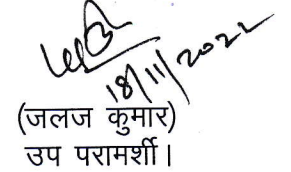 18/11/2022
(जलज कुमार)
उप परामर्शी।